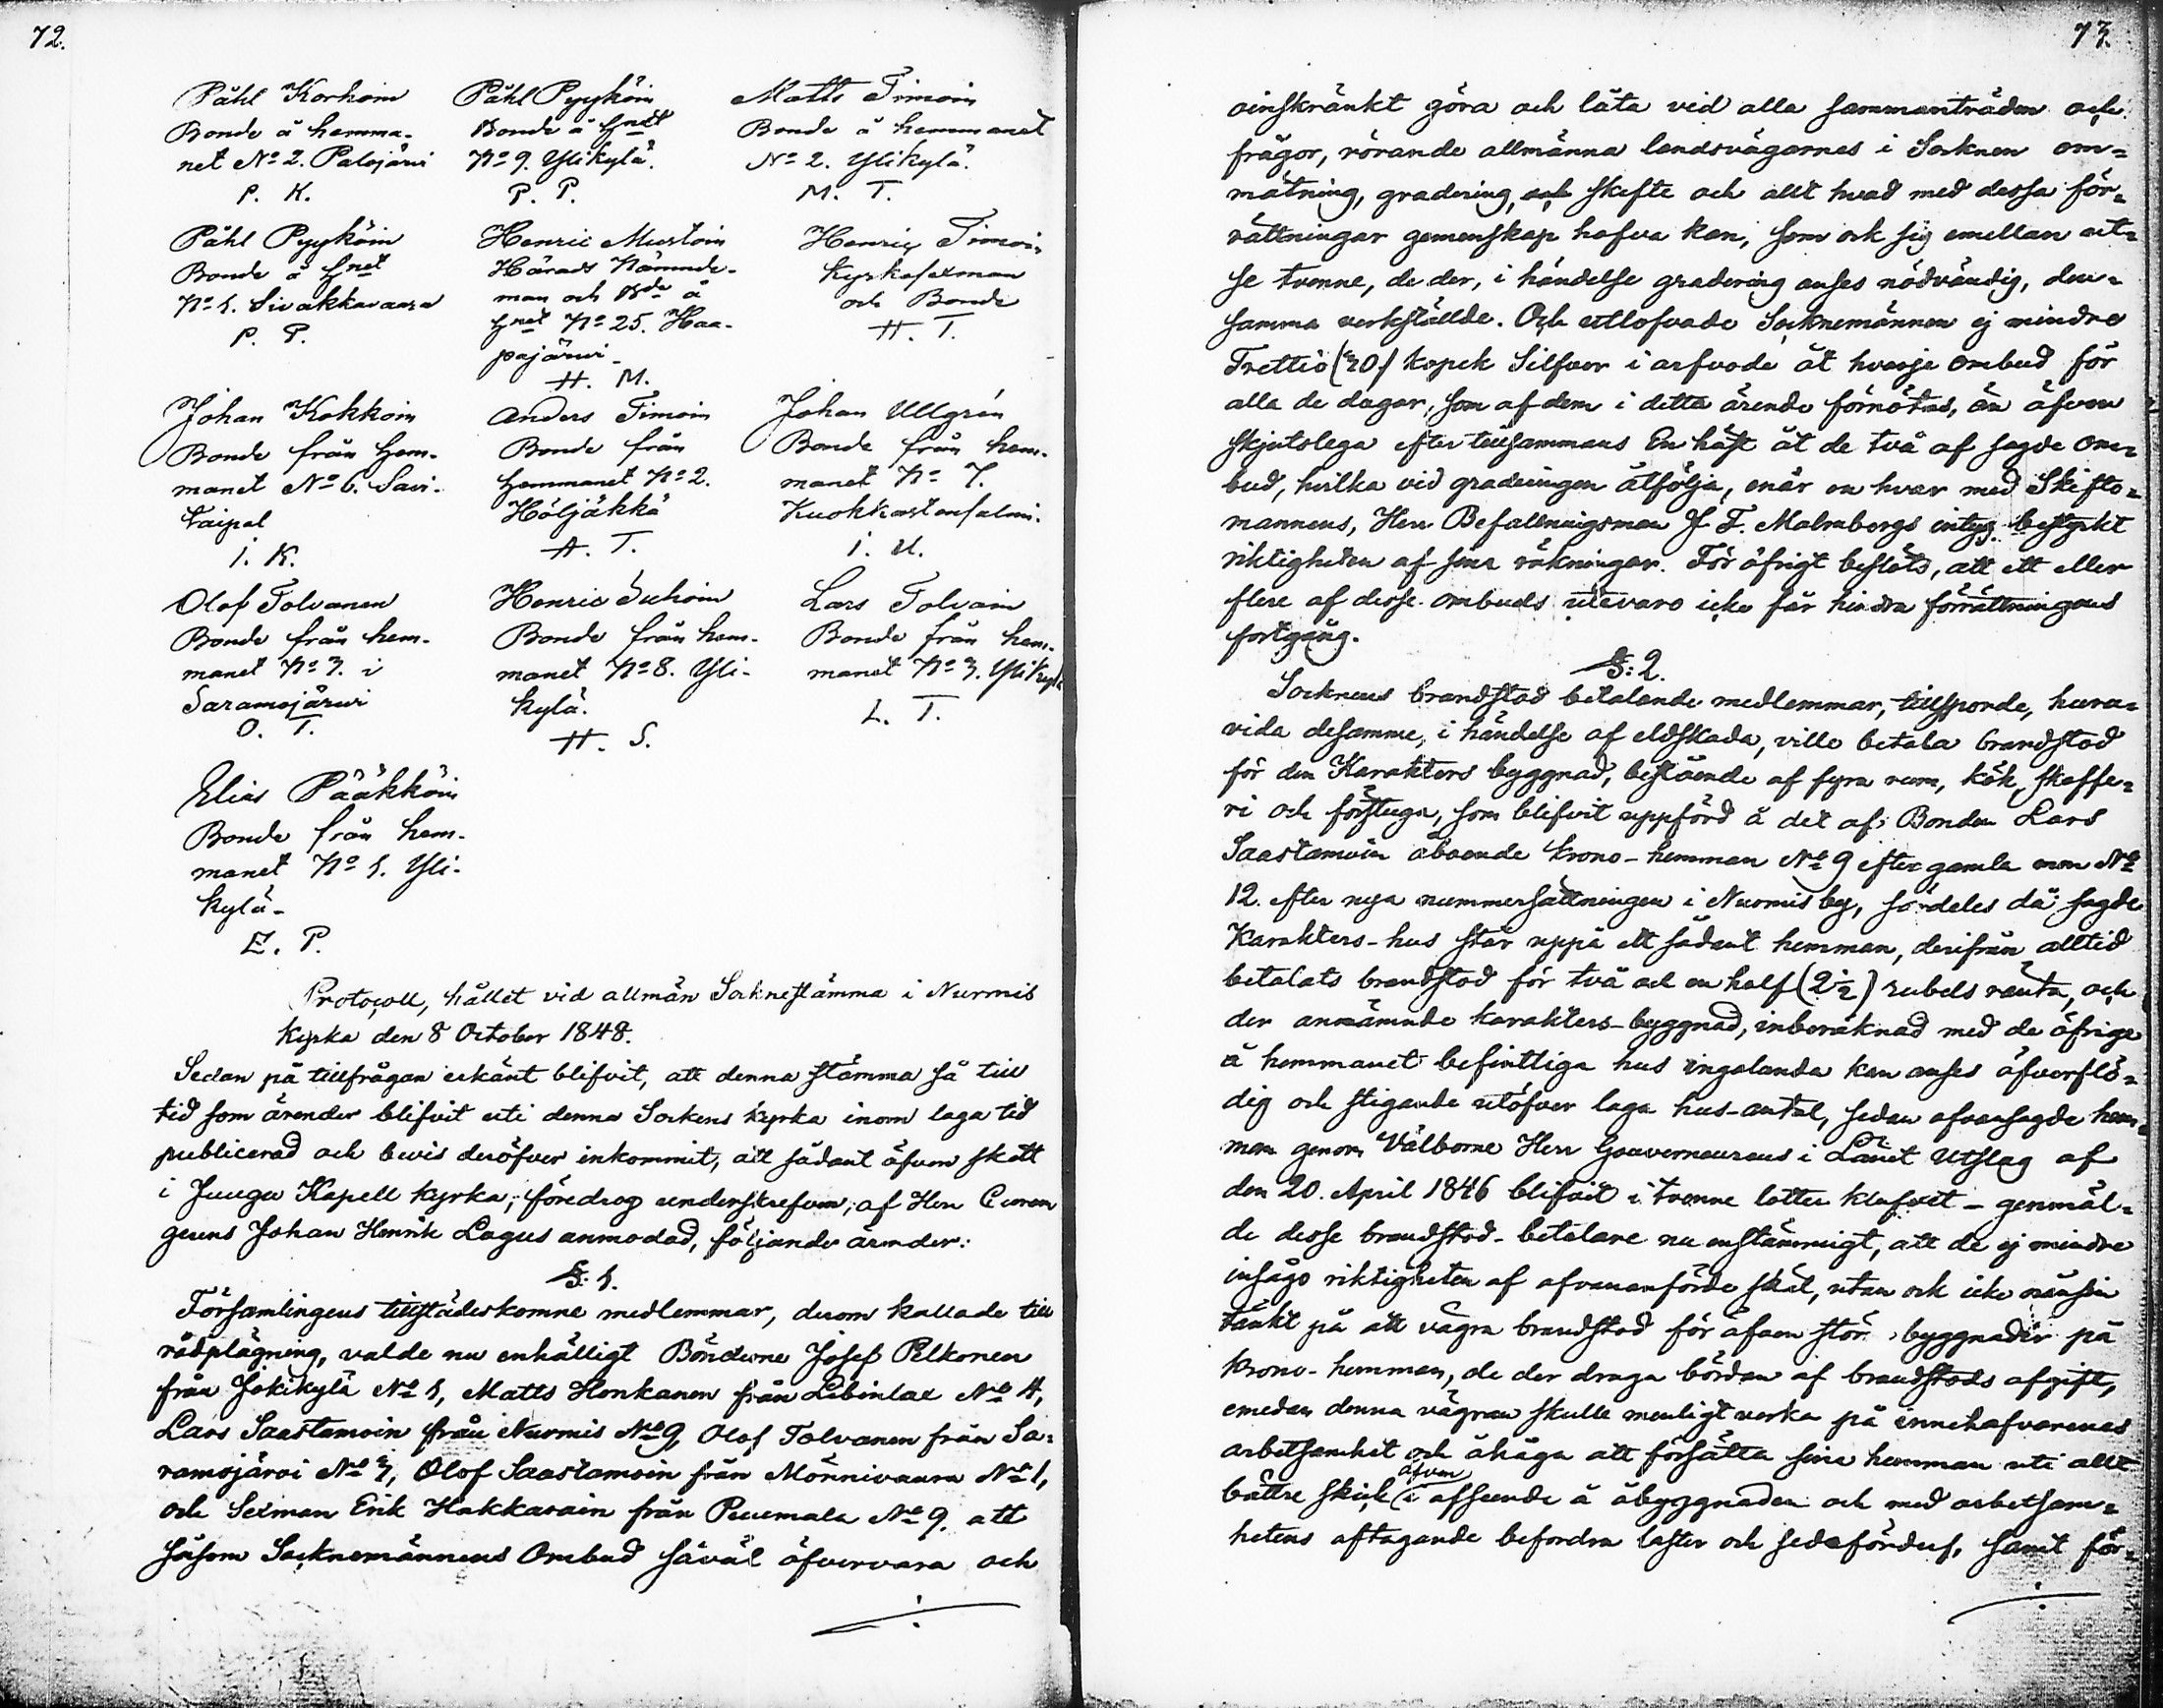 72.
Påhl Korhoin
Bonde å hemma-
net No 2. Palojärvi
P. K.
Påhl Pyyköin
Bonde å Hnet
No 9. Ylikylä.
P. P.
Matts Timoin
Bonde å hemmanet
No 2. Ylikylä.
M. T.
Påhl Pyyköin
Bonde å Hnet
No 1. Sivakkavaara
P. P.
Henric Mustoin
Härads Nämnde-
man och Bde å
Hnet No 25. Haa-
pajärvi
H. M.
Henric Timoin
Kyrkosexman
och Bonde
H. T.
Johan Kokkoin
Bonde från Hem-
manet No 6. Savi-
kaipal
I. K.
Anders Timoin
Bonde från
Hemmanet No 2.
Höljäkkä
A. T.
Johan Ullgrén
Bonde från hem-
manet No 7.
Kuokkastensalmi.
I. U.
Olof Tolvanen
Bonde från hem-
manet No 3. i
Saramojärvi
O. T.
Henric Suhoin
Bonde från hem-
manet No 8. Yli-
kylä.
H. S.
Lars Tolvain
Bonde från hem-
manet No 3. Ylikylä
L. T.
Elias Pääkköin
Bonde från hem-
manet No 1. Yli-
kylä-
E. P.
Protocoll, hållet vid allmän Socknestämma i Nurmis
kyrka den 8 October 1848.
Sedan på tillfrågan erkänt blifvit, att denna stämma så till
tid som ärender blifvit uti denna Sockens kyrka inom laga tid
publicerad och bevis deröfver inkommit, att sådant äfven skett
i Juuga Kapell kyrka, föredrog underskrefven, af Herr Comm
gerens Johan Henrik Lagus anmodad, följande ärender:
§: 1.
Församlingens tillstädeskomne medlemmar, derom kallade till
rådplägning, valde nu enhälligt Bönderne Josef Pelkonen
från Jokikylä No 1, Matts Honkanen från Libinlax No 4,
Lars Saastamoin från Nurmis No 9, Olof Tolvanen från Sa-
ramojärvi No 3, Olof Saastamoin från Mönnivaara No 1,
och Sexman Erik Hakkarain från Puumala No 9. att
såsom Socknemännens Ombud såväl öfvervara och
73.
oinskränkt göra och låta vid alla sammanträden och
frågor, rörande allmänna landsvägarnes i Socknen om-
mätning, gradering, och skifte och allt hvad med dessa för-
rättningar gemenskap hafva kan, som ock sig emellan ut-
se tvenne, de der, i händelse gradering anses nödvändig, den-
samma verkställde. Och utlofvade Socknemännen ej mindre
Trettio (30) kopek Silfver i arfvode åt hvarje ombud för
alla de dagar, som af dem i detta ärende förnötas, än äfven
skjutslega efter tillsammans En häst åt de två af sagde om-
bud, hvilka vid graderingen åtfölja, enär en hvar med Skifts-
mannens, Herr Befallningsman J F. Malmbergs intyg bestyrkt
riktigheten af sina räkningar. För öfrigt beslöts, att ett eller
flere af desse ombuds utevaro icke får hindra förrättningens
fortgång.
§: 2.
Socknens brandstod betalande medlemmar, tillsporde, huru-
vida desamme, i händelse af eldskada, ville betala brandstod
för den Karakters byggnad, bestående af fyra rum, kök, skaffe-
ri och förstuga, som blifvit uppförd å det af Bonden Lars
Saastamoin åboende krono-hemman No 9 efter gamla men No
12. efter nya nummersättningen i Nurmis by, särdeles då sagde
Karakters-hus står uppå ett sådant hemman, derifrån alltid
betalats brandstod för två och en half (2 1/2) rubels ränta, och
der annämnde karakters-byggnad, inberäknad med de öfrige
å hemmanet befintliga hus ingalanda kan anses öfverflö-
dig och stigande utöfver laga hus-antal, sedan ofvansagde hem-
man genom Välborne Herr Gouverneurens i Länet Utslag af
den 20. April 1846 blifvit i tvenne lotter klufvet - genmäl-
de desse brandstod-betalare nu enstämmigt, att de ej mindre
insågo riktigheten af ofvananförde skäl, utan ock icke nånsin
tänkt på att vägra brandstod för äfven stör. byggnader på
krono-hemman, de der draga bördan af brandstods afgift,
emedan denna vägran skulle menligt verka på innehafvarenes
arbetsamhet och åhåga att försätta sina hemman uti allt
bättre skick äfven i afseende å åbyggnaden och med arbetsam-
hetens aftagande befordra laster och sedeförderf, samt för-